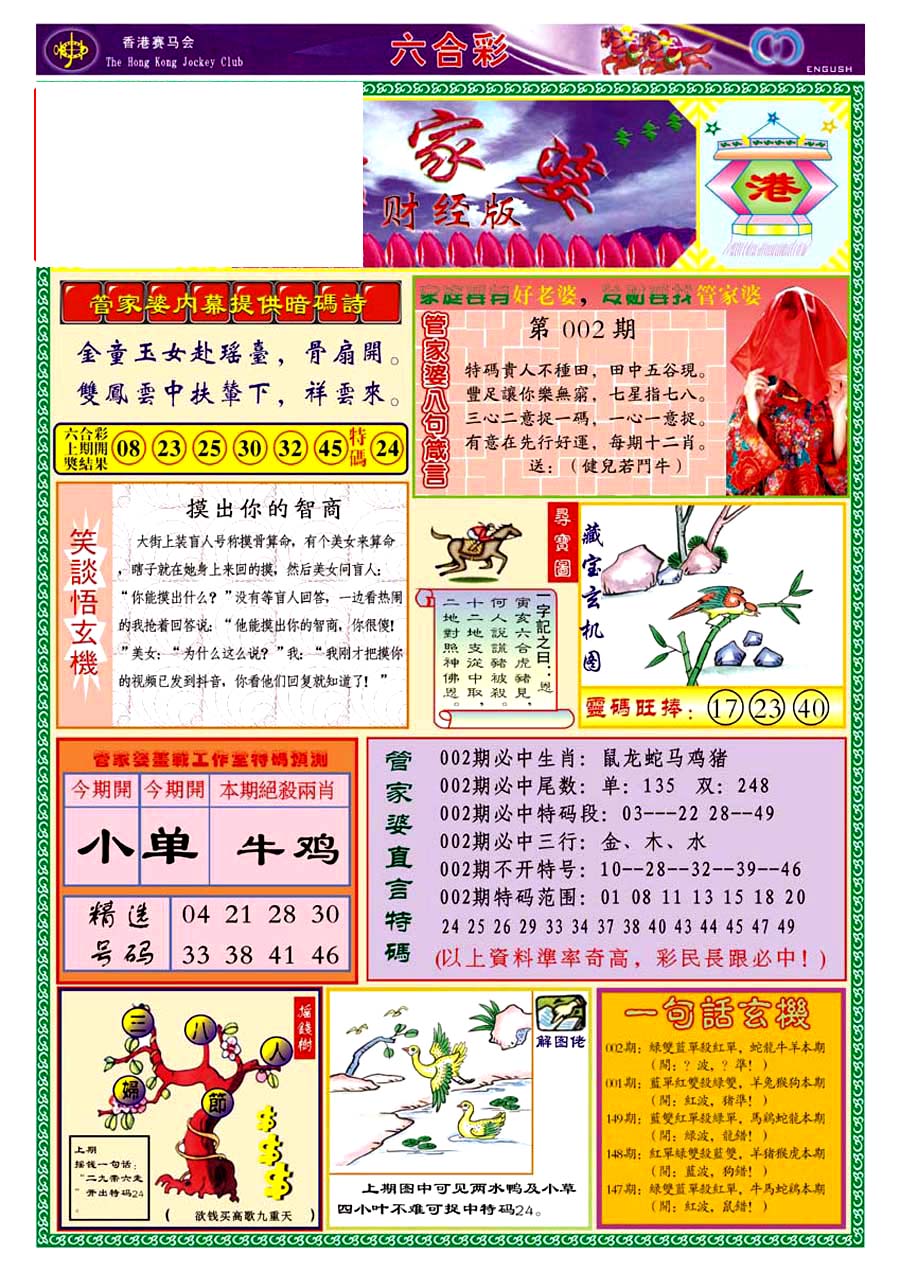 香港赛马会
The Hong Kong Jockey Club
六合彩
ENGUSH
家婆
财经版
港
管家婆内幕提供暗碼詩
金童玉女赴瑶臺，骨扇開。
雙鳳雲中扶輦下，祥雲來。
六合彩
上期開
獎結果
08 23 25 30 32 45 特碼 24
家庭要有好老婆，发财要找管家婆
管家婆八句箴言
第 002 期
特碼貴人不種田，田中五谷現。
豐足讓你樂無窮，七星指七八。
三心二意捉一碼，一心一意捉。
有意在先行好運，每期十二肖。
送：（健兒若鬥牛）
笑談悟玄機
摸出你的智商
大街上装盲人号称摸骨算命，有个美女来算命
，瞎子就在她身上来回的摸，然后美女问盲人：
“你能摸出什么？”没有等盲人回答，一边看热闹
的我抢着回答说：“他能摸出你的智商，你很傻！
”美女：“为什么这么说？”我：“我刚才把摸你
的视频已发到抖音，你看他们回复就知道了！”
尋寶圖
一字記之曰：恩
寅亥六合虎豬見，
何人說謊豬被殺。
十二地支從中取，
二地對照神佛恩。
藏宝玄机图
靈碼旺捧：17 23 40
管家婆薑戰工作室特碼預測
今期開 今期開 本期絕殺兩肖
小 单 牛鸡
精选
号码
04 21 28 30
33 38 41 46
管家婆直言特碼
002期必中生肖：鼠龙蛇马鸡猪
002期必中尾数：单：135 双：248
002期必中特码段：03---22 28--49
002期必中三行：金、木、水
002期不开特号：10--28--32--39--46
002期特码范围：01 08 11 13 15 18 20
24 25 26 29 33 34 37 38 40 43 44 45 47 49
(以上資料準率奇高，彩民長跟必中！)
摇錢樹
三
八
人
婦
節
上期
摇钱一句话：
“二九零六走
”开出特码24
。
（ 欲钱买高歌九重天 ）
解图佬
上期图中可见两水鸭及小草
四小叶不难可捉中特码24。
一句話玄機
002期：綠雙藍單殺紅單，蛇龍牛羊本期
（開：？波，？準！）
001期：藍單紅雙殺綠雙，羊兔猴狗本期
（開：紅波，猪準！）
149期：藍雙紅單殺綠單，馬鷄蛇龍本期
（開：綠波，龍錯！）
148期：紅單綠雙殺藍雙，羊猪猴虎本期
（開：藍波，狗錯！）
147期：綠雙藍單殺紅單，牛馬蛇鷄本期
（開：紅波，鼠錯！）